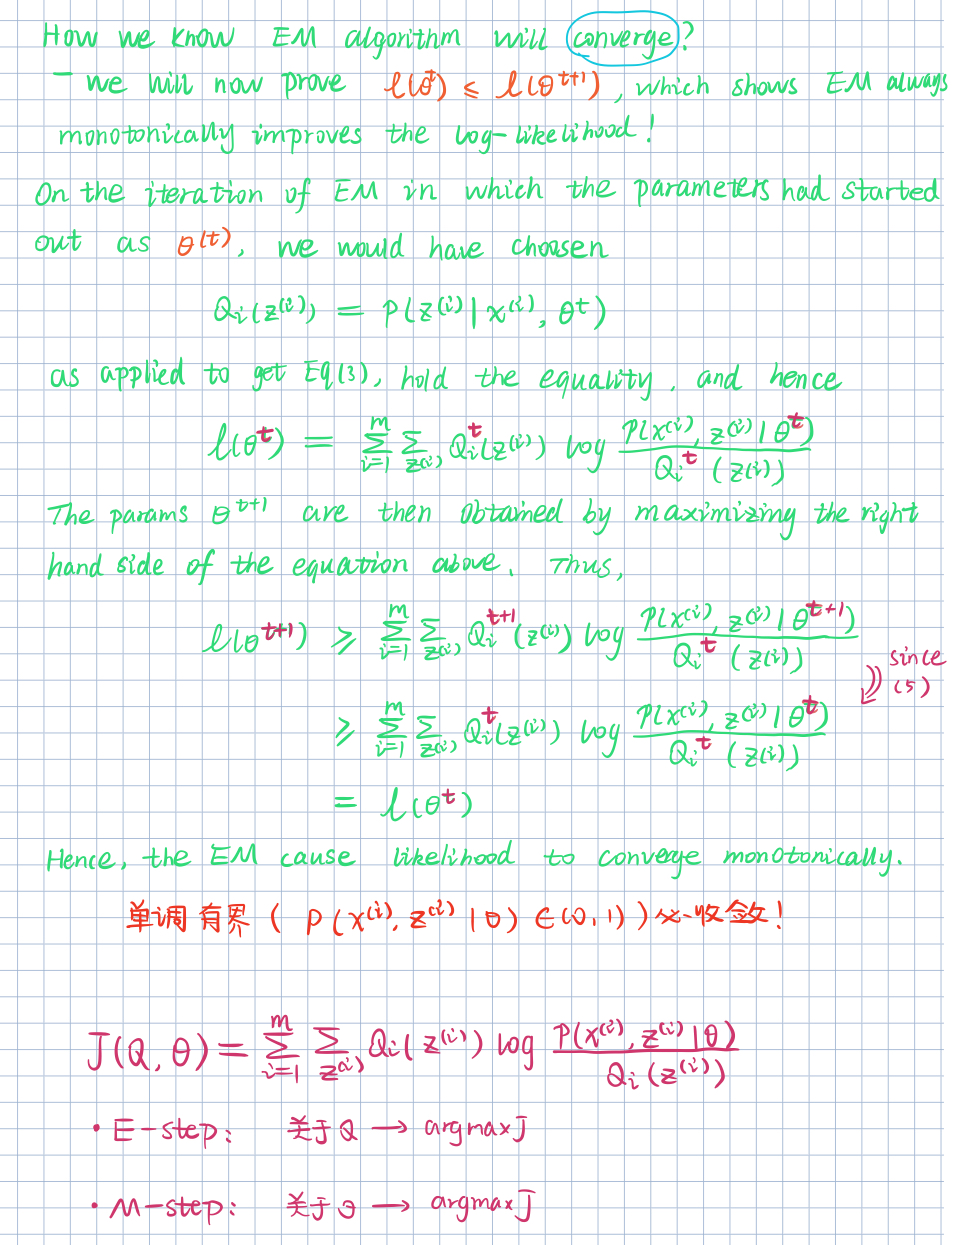 How we know EM algorithm will converge?
- we will now prove ℓ(θ^t) ≤ ℓ(θ^{t+1}), which shows EM always
monotonically improves the log-likelihood!
On the iteration of EM in which the parameters had started
out as θ^{(t)}, we would have chosen
Q_i(z^{(i)}) = P(z^{(i)} | x^{(i)}, θ^t)
as applied to get Eq(3), hold the equality, and hence
ℓ(θ^t) = Σ_{i=1}^m Σ_{z^{(i)}} Q_i^t(z^{(i)}) log P(x^{(i)}, z^{(i)} | θ^t) / Q_i^t(z^{(i)})
The params θ^{t+1} are then obtained by maximizing the right
hand side of the equation above. Thus,
ℓ(θ^{t+1}) ≥ Σ_{i=1}^m Σ_{z^{(i)}} Q_i^{t+1}(z^{(i)}) log P(x^{(i)}, z^{(i)} | θ^{t+1}) / Q_i^t(z^{(i)})
since
(5)
≥ Σ_{i=1}^m Σ_{z^{(i)}} Q_i^t(z^{(i)}) log P(x^{(i)}, z^{(i)} | θ^t) / Q_i^t(z^{(i)})
= ℓ(θ^t)
Hence, the EM cause likelihood to converge monotonically.
单调有界 ( P(x^{(i)}, z^{(i)} | θ) ∈ (0, 1) ) 必收敛!
J(Q, θ) = Σ_{i=1}^m Σ_{z^{(i)}} Q_i(z^{(i)}) log P(x^{(i)}, z^{(i)} | θ) / Q_i(z^{(i)})
· E-step: 关于 Q → argmax J
· M-step: 关于 θ → argmax J